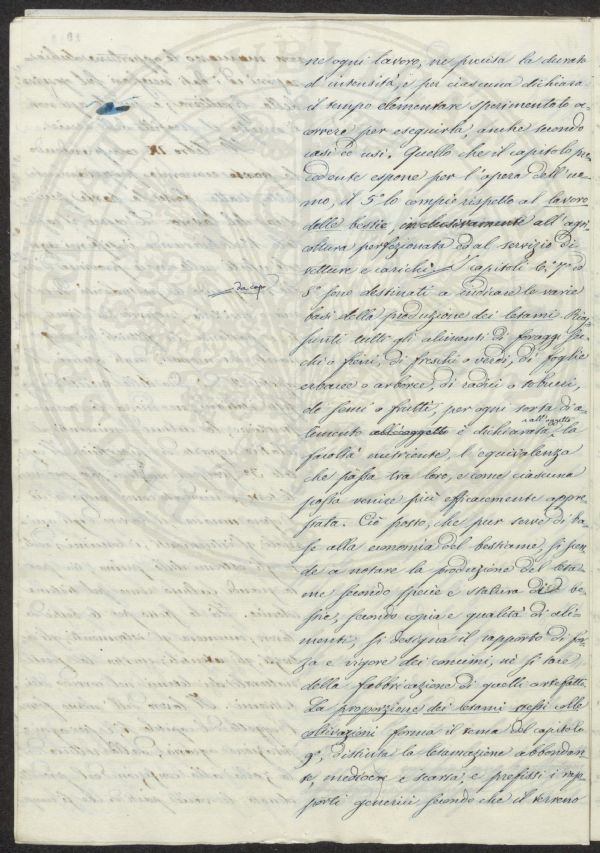 ne ogni lavoro, ne precisa la durata
d'intensità, e per ciascuna dichiara
il tempo elementare sperimentato oc-
correre per eseguirla, anche secondo
casi ed usi. Quello che il capitolo pre-
cedente espone per l'opera dell'uo-
mo, il 5° lo compie rispetto al lavoro
delle bestie, inclusivamente all'agri-
coltura perfezionata ed al servizio di
vetture e carichi. I capitoli 6°, 7° ed
da capo
8° sono destinati a indicare le varie
basi della produzione dei letami. Rias-
sunti tutti gli alimenti di foraggi sec-
chi o fieni, di freschi o verdi, di foglie
erbacee o arboree, di radici o tuberi,
de semi o frutti, per ogni sorta di a-
all'oggetto
limento all'oggetto è dichiarata la
facoltà nutriente, l'equivalenza
che passa tra loro, e come ciascuna
possa venire più efficacemente appre-
stata. Ciò posto, che pur serve di ba-
se alla economia del bestiame, si scen-
de a notare la produzione del leta-
me secondo specie e statura di be-
stie, secondo copia e qualità di ali-
menti; si designa il rapporto di for-
za e vigore dei concimi, nè si tace
della fabbricazione di quelli artefatti.
La proporzione dei letami stessi alle
coltivazioni forma il tema del capitolo
9°, distinta la letamazione abbondan-
te, mediocre e scarsa, e prefissi i rap-
porti generici secondo che il terreno